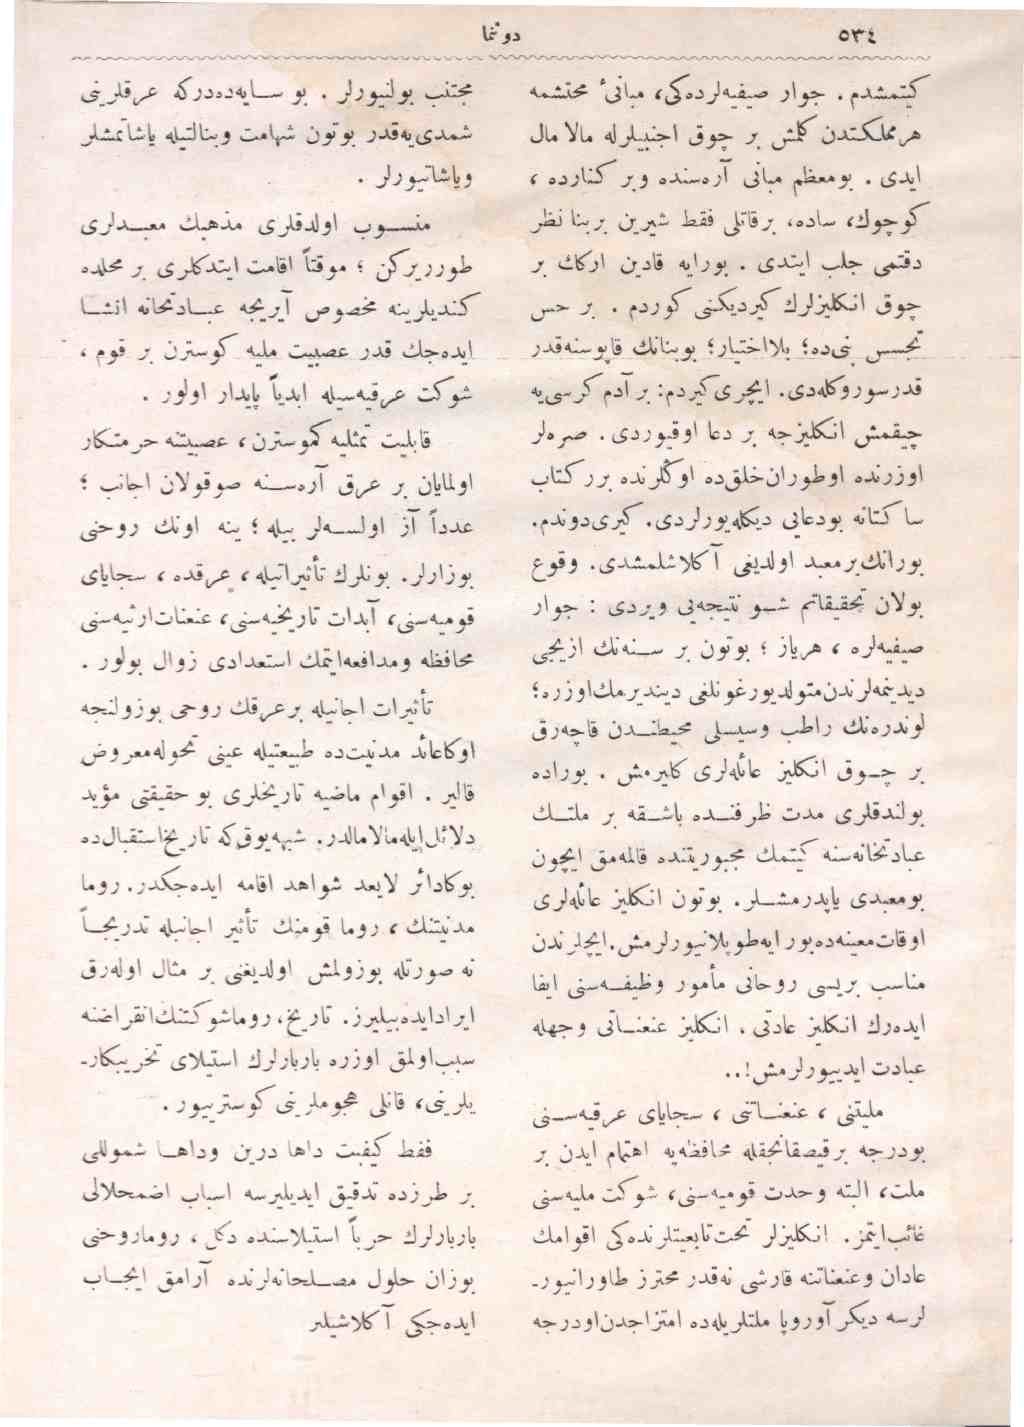 ٥٣٤
دونما
كیتمشدم . جوار صیفیه‌لرده‌كی، مبانیٔ محتشمه
هر مملكتدن كلمش بر چوق اجنبیلرله مالا مال
ایدی . بومعظم مبانی آره‌سنده وبر كنارده ،
كوچوك، ساده، برقاتلی فقط شیرین بر بنا نظر
دقتمی جلب ایتدی . بورایه قادین اركك بر
چوق انكلیزلرك كیردیكنی كوردم . بر حس
تجسس بنی‌ده؛ بلااختیار؛ بوبنانك قاپوسنه‌قدر
قدرسوروكله‌دی. ایچری‌كیردم: بر آدم كرسی‌یه
چیقمش انكلیزجه بر دعا اوقیوردی . صره‌لر
اوزرنده اوطوران‌خلق‌ده اوكلرنده برر كتاب
ساكتانه بودعایی دیكله‌یورلردی. كیری‌دوندم.
بورانك‌برمعبد اولدیغی آكلاشلمشدی. وقوع
بولان تحقیقاتم شو نتیجه‌یی ویردی : جوار
صیفیه‌لره ، هریاز ؛ بوتون بر سنه‌نك ازیجی
دیدینمه‌لرندن‌متولدیورغونلغی دیندیرمك‌اوزره؛
لوندره‌نك راطب وسیسلی محیطندن قاچه‌رق
بر چوق انكلیز عائله‌لری كلیرمش . بوراده
بولندقلری مدت ظرفنده باشقه بر ملتك
عبادتخانه‌سنه كیتمك مجبوریتنده قالمه‌مق ایچون
بومعبدی یاپدرمشلر. بوتون انكلیز عائله‌لری
اوقات‌معینه‌ده‌بورایه‌طوپلانیورلرمش.ایچلرندن
مناسب بریسی روحانی مأمور وظیفه‌سنی ایفا
ایده‌رك انكلیز عادتی . انكلیز عنعناتی وجهله
عبادت ایدییورلرمش!..
ملیتنی ، عنعناتنی ، سجایای عرقیه‌سنی
بودرجه برقیصقانجقله محافظه‌یه اهتمام ایدن بر
ملت، البته وحدت قومیه‌سنی، شوكت ملیه‌سنی
غائب‌ایتمز. انكلیزلر تحت‌تابعیتلرنده‌كی اقوامك
عادان وعنعناتنه قارشی نه‌قدر محترز طاورانیور-
لرسه دیكر آوروپا ملتلریله‌ده امتزاجدن‌اودرجه
مجتنب بولنیورلر . بو سایه‌ده‌دركه عرقلرینی
شمدی‌یه‌قدر بوتون شهامت وبنالتیله یاشاتمشلر
ویاشاتیورلر .
منسوب اولدقلری مذهبك معبدلری
طورریركن ؛ موقتاً اقامت ایتدكلری بر محلده
كندیلرینه مخصوص آیریجه عبادتخانه انشا
ایده‌جك قدر عصبیت ملیه كوسترن بر قوم ،
شوكت عرقیه‌سیله ابدیاً پایدار اولور .
قابلیت تمثلیه كوسترن، عصبیتنه حرمتكار
اولمایان بر عرق آره‌سنه صوقولان اجانب ؛
عدداً آز اولسه‌لر بیله ؛ ینه اونك روحنی
بوزارلر. بونلرك تأثیراتیله، عرقده ، سجایای
قومیه‌سنی، آبدات تاریخیه‌سنی، عنعنات‌ارثیه‌سنی
محافظه ومدافعه‌ایتمك استعدادی زوال بولور .
تأثیرات اجانبله برعرقك روحی بوزولنجه
اوكاعائد مدنیت‌ده طبیعتیله عینی تحوله‌معروض
قالیر . اقوام ماضیه تاریخلری بو حقیقتی مؤید
دلائل‌ایله‌مالامالدر. شبهه‌یوق‌كه تاریخ‌استقبال‌ده
بوكادائر لایعد شواهد اقامه ایده‌جكدر. روما
مدنیتنك ، روما قومنك تأثیر اجانبله تدریجاً
نه صورتله بوزولمش اولدیغنی بر مثال اوله‌رق
ایرادایده‌بیلیرز. تاریخ، روماشوكتنك‌انقراضنه
سبب‌اولمق اوزره باربارلرك استیلای تخریبكار-
یلرینی، قانلی هجوملرینی كوستریپور.
فقط كیفیت داها درین وداها شموللی
بر طرزده تدقیق ایدیلیرسه اسباب اضمحلالی
باربارلرك حرباً استیلاسنده دكل ، روماروحنی
بوزان حلول مصلحانه‌لرنده آرامق ایجاب
ایده‌جكی آكلاشیلیر